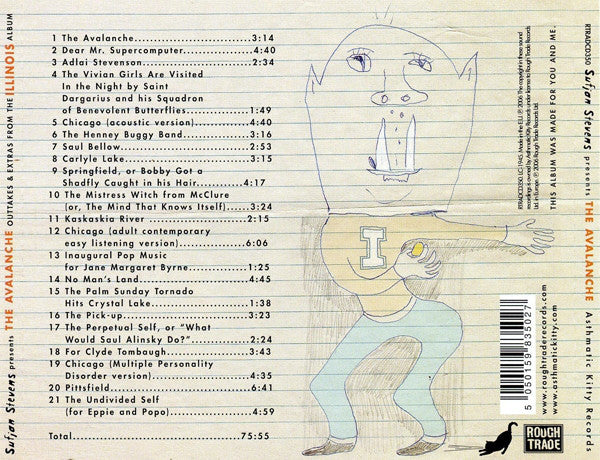 Sufjan Stevens presents THE AVALANCHE OUTTAKES & EXTRAS FROM THE ILLINOIS ALBUM
1 The Avalanche 3:14
2 Dear Mr. Supercomputer 4:40
3 Adlai Stevenson 2:34
4 The Vivian Girls Are Visited
In the Night by Saint
Dargarius and his Squadron
of Benevolent Butterflies 1:49
5 Chicago (acoustic version) 4:40
6 The Henney Buggy Band 3:16
7 Saul Bellow 2:53
8 Carlyle Lake 3:15
9 Springfield, or Bobby Got a
Shadfly Caught in his Hair 4:17
10 The Mistress Witch from McClure
(or, The Mind That Knows Itself) 3:24
11 Kaskaskia River 2:15
12 Chicago (adult contemporary
easy listening version) 6:06
13 Inaugural Pop Music
for Jane Margaret Byrne 1:25
14 No Man's Land 4:45
15 The Palm Sunday Tornado
Hits Crystal Lake 1:38
16 The Pick-up 3:23
17 The Perpetual Self, or "What
Would Saul Alinsky Do?" 2:24
18 For Clyde Tombaugh 3:43
19 Chicago (Multiple Personality
Disorder version) 4:35
20 Pittsfield 6:41
21 The Undivided Self
(for Eppie and Popo) 4:59
Total 75:55
I
RTRADCD350. LC 11945. Made in the E.U. ℗ 2006. The copyright in these sound
recordings is owned by Asthmatic Kitty Records under license to Rough Trade Records
Ltd. in Europe. © 2006 Rough Trade Records Ltd.
THIS ALBUM WAS MADE FOR YOU AND ME.
5 050159 835027
www.roughtraderecords.com
www.asthmatickitty.com
ROUGH
TRADE
RTRADCD350
Sufjan Stevens presents THE AVALANCHE Asthmatic Kitty Records